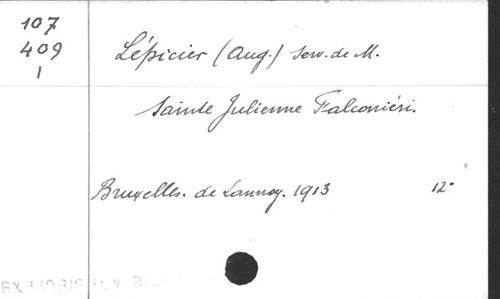 107
409
1
Lépicier (Aug.) Serv. de M.
Sainte Julienne Falconiéri.
Bruxelles. de Lannoy. 1913 12°
EX LIBRIS